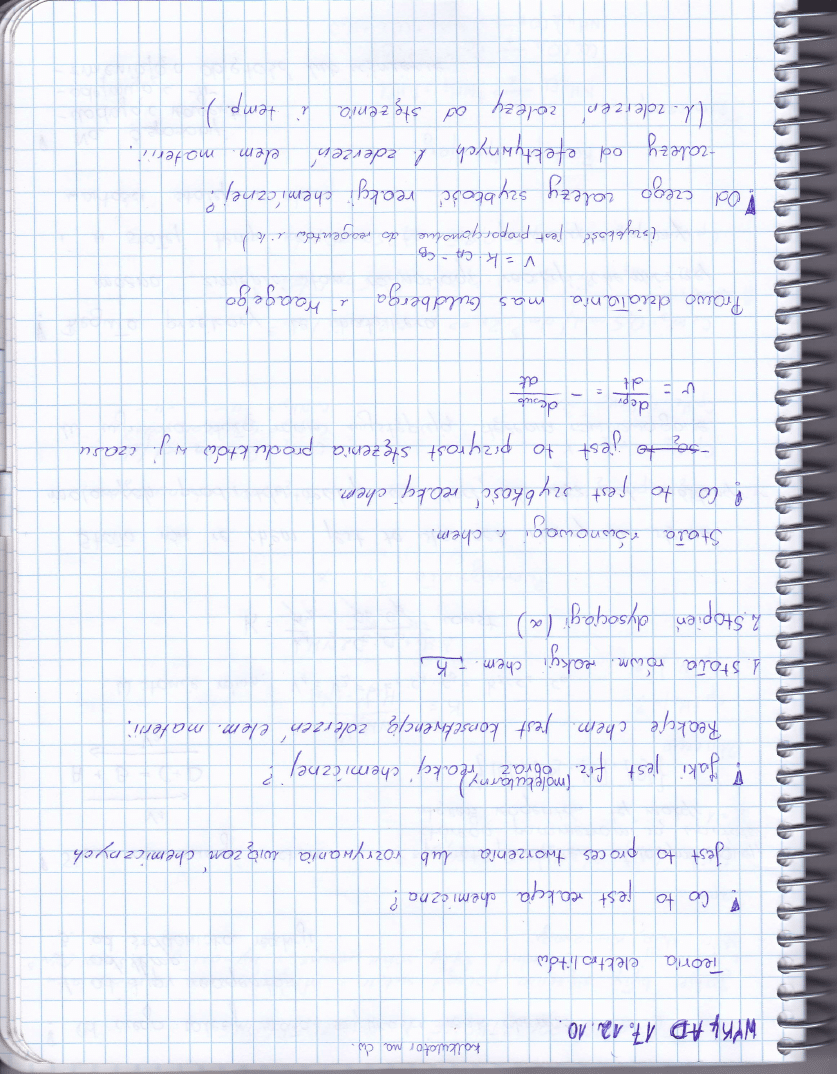 kalkulator na ćw.
WYKŁAD 17.12.10.
Teoria elektrolitów
! Co to jest reakcja chemiczna?
jest to proces tworzenia lub rozrywania wiązań chemicznych
! Jaki jest fiz. (molekularny) obraz reakcji chemicznej?
Reakcje chem. jest konsekwencją zderzeń elem. materii.
1. Stała równ. reakcji chem. - K
2. Stopień dysocjacji (α)
Stała równowagi r. chem.
! Co to jest szybkość reakcji chem.
jest to przyrost stężenia produktów w j. czasu
v = dcpr/dt = - dcsub/dt
Prawo działania mas Guldberga i Waage'go
V = k · cA - cB
(szybkość jest proporcjonalna do reagentów i k)
! Od czego zależy szybkość reakcji chemicznej?
- zależy od efektywnych l. zderzeń elem. materii.
(l. zderzeń zależy od stężenia i temp.)